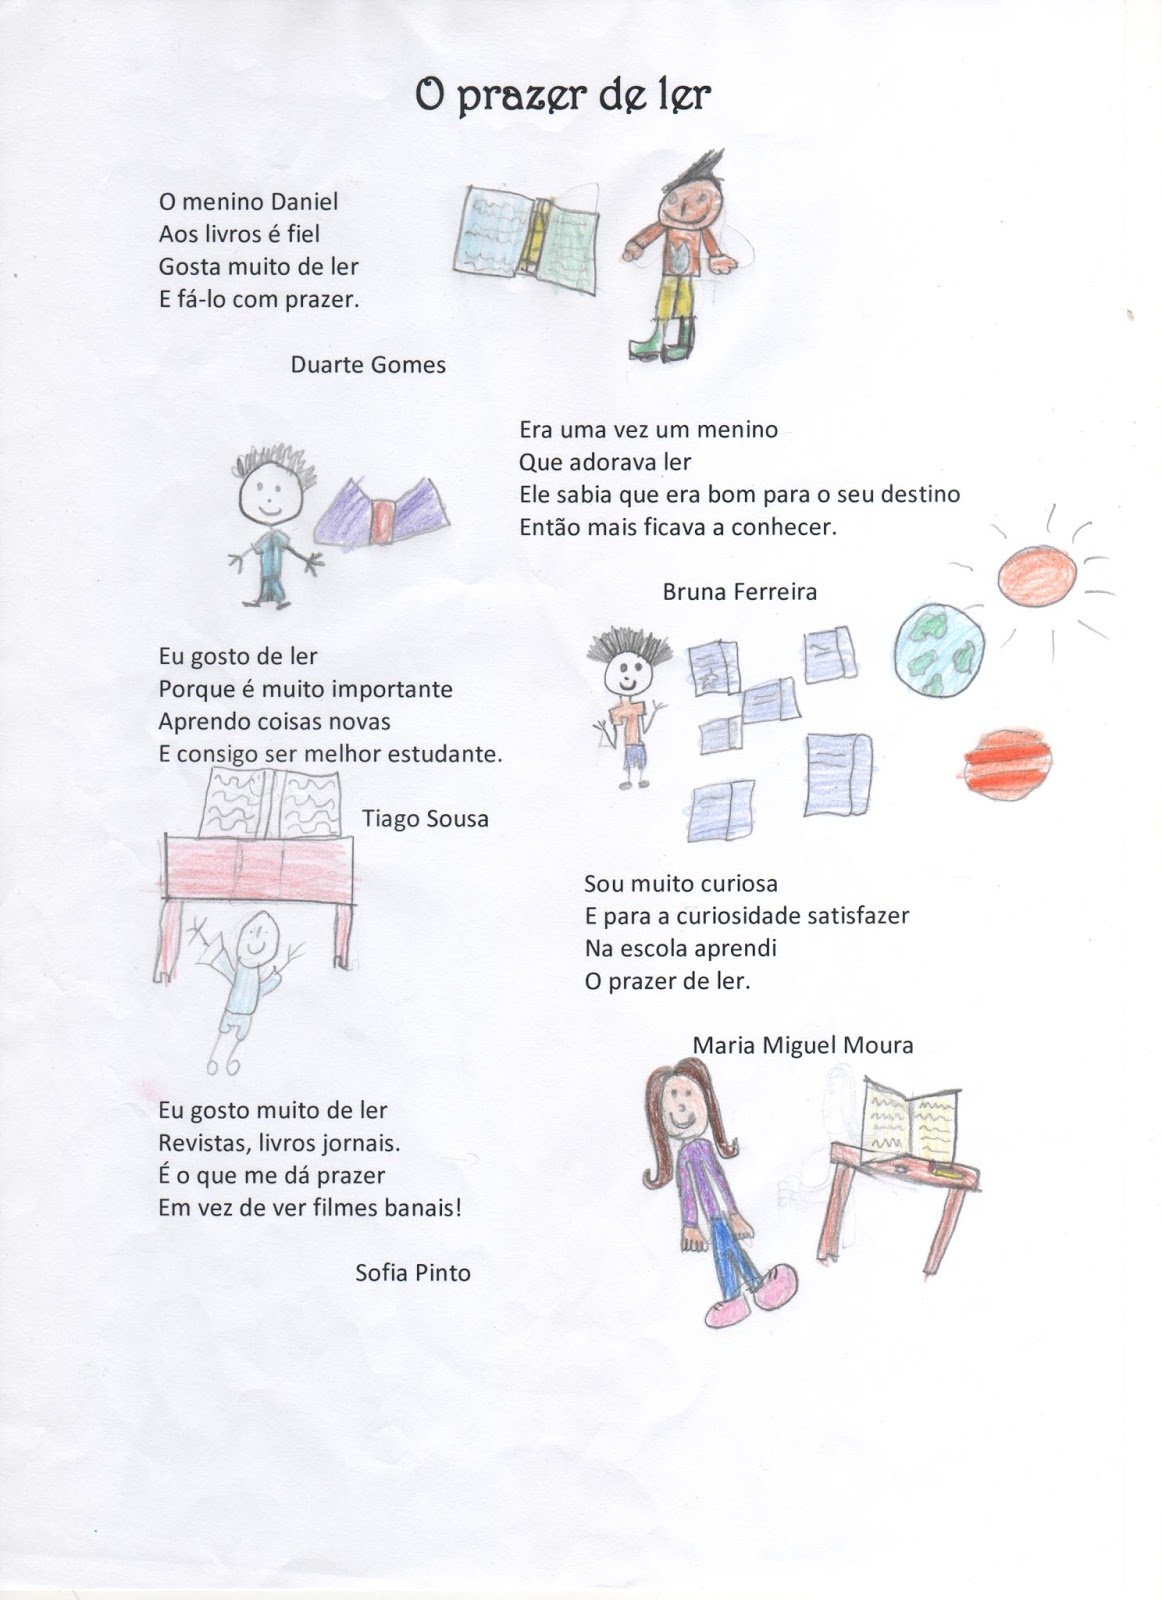 O prazer de ler
O menino Daniel
Aos livros é fiel
Gosta muito de ler
E fá-lo com prazer.
Duarte Gomes
Era uma vez um menino
Que adorava ler
Ele sabia que era bom para o seu destino
Então mais ficava a conhecer.
Bruna Ferreira
Eu gosto de ler
Porque é muito importante
Aprendo coisas novas
E consigo ser melhor estudante.
Tiago Sousa
Sou muito curiosa
E para a curiosidade satisfazer
Na escola aprendi
O prazer de ler.
Maria Miguel Moura
Eu gosto muito de ler
Revistas, livros jornais.
É o que me dá prazer
Em vez de ver filmes banais!
Sofia Pinto